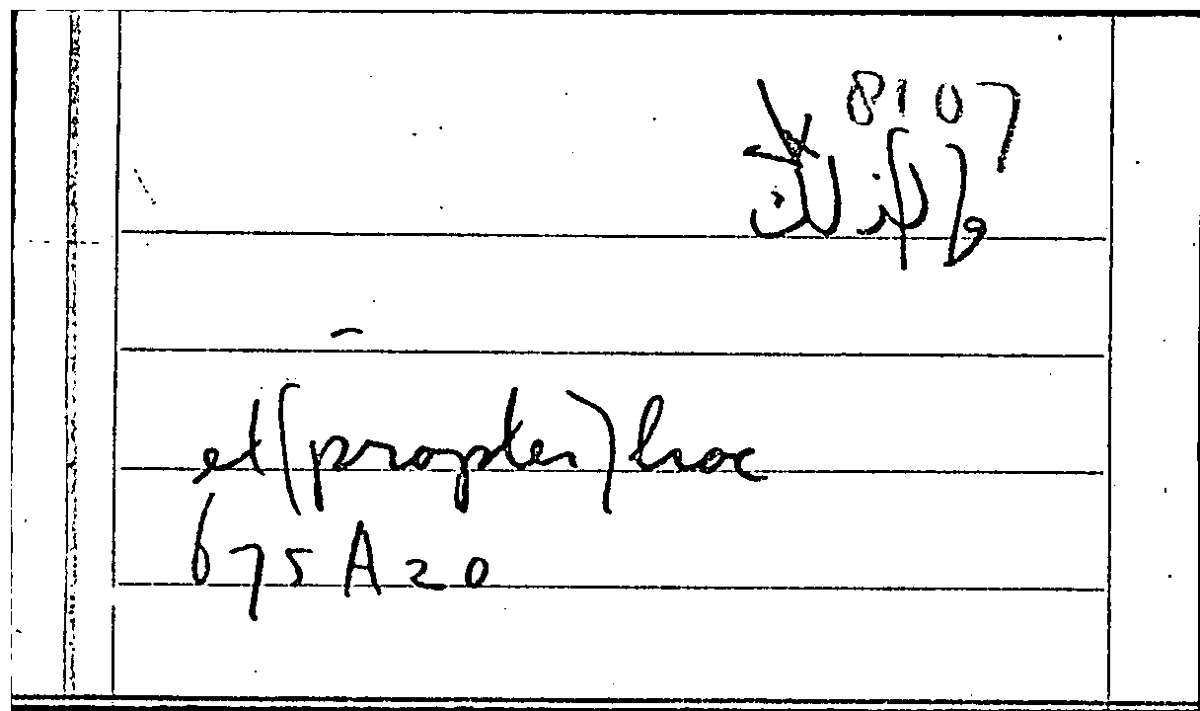 8107
و(ل)ذلك
et (propter) hoc
675 A 20